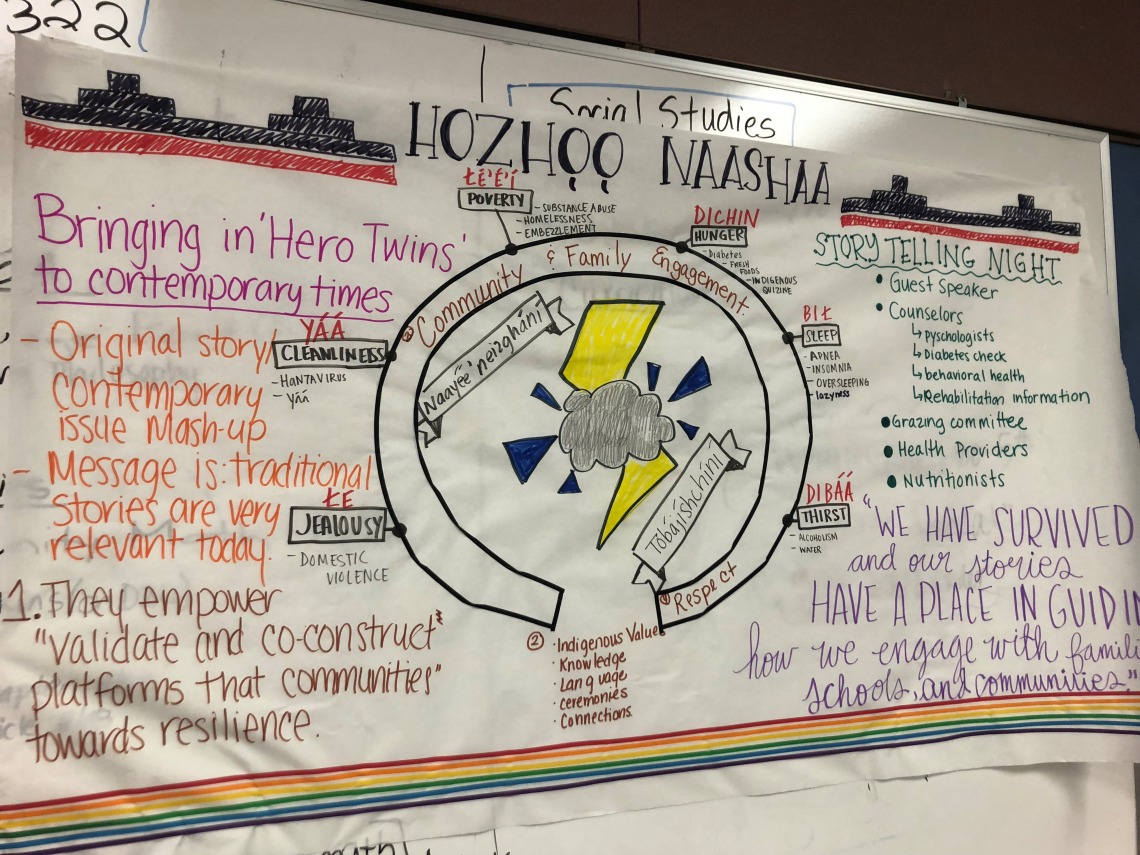 322
Social Studies
HOZHǪǪ NAASHAA
Bringing in 'Hero Twins'
to contemporary times
- Original story/
contemporary
issue Mash-up
- Message is: traditional
Stories are very
relevant today.
1. They empower
"validate and co-construct"
platforms that communities"
towards resilience.
ŁÉ'É'Í
POVERTY
- SUBSTANCE ABUSE
- HOMELESSNESS
- EMBEZZLEMENT
DICHIN
HUNGER
- Diabetes
- FRESH
FOODS
- INDIGENOUS
QUIZINE
BIŁ
SLEEP
- APNEA
- INSOMNIA
- OVERSLEEPING
- lazyness
DIBÁÁ
THIRST
- ALCOHOLISM
- WATER
YÁÁ
CLEANLINESS
- HANTAVIRUS
- yáá
ŁE
JEALOUSY
- DOMESTIC
VIOLENCE
Community & Family Engagement
Naayéé'neizghání
Tóbájíshchíní
Respect
② · Indigenous Values
· Knowledge
· Language
· ceremonies
· Connections
STORY TELLING NIGHT
• Guest Speaker
• Counselors
↳ Pyschologists
↳ Diabetes check
↳ behavioral health
↳ Rehabilitation information
• Grazing committee
• Health Providers
• Nutritionists
"WE HAVE SURVIVED
and our stories
HAVE A PLACE IN GUIDIN
how we engage with famili
schools, and communities."